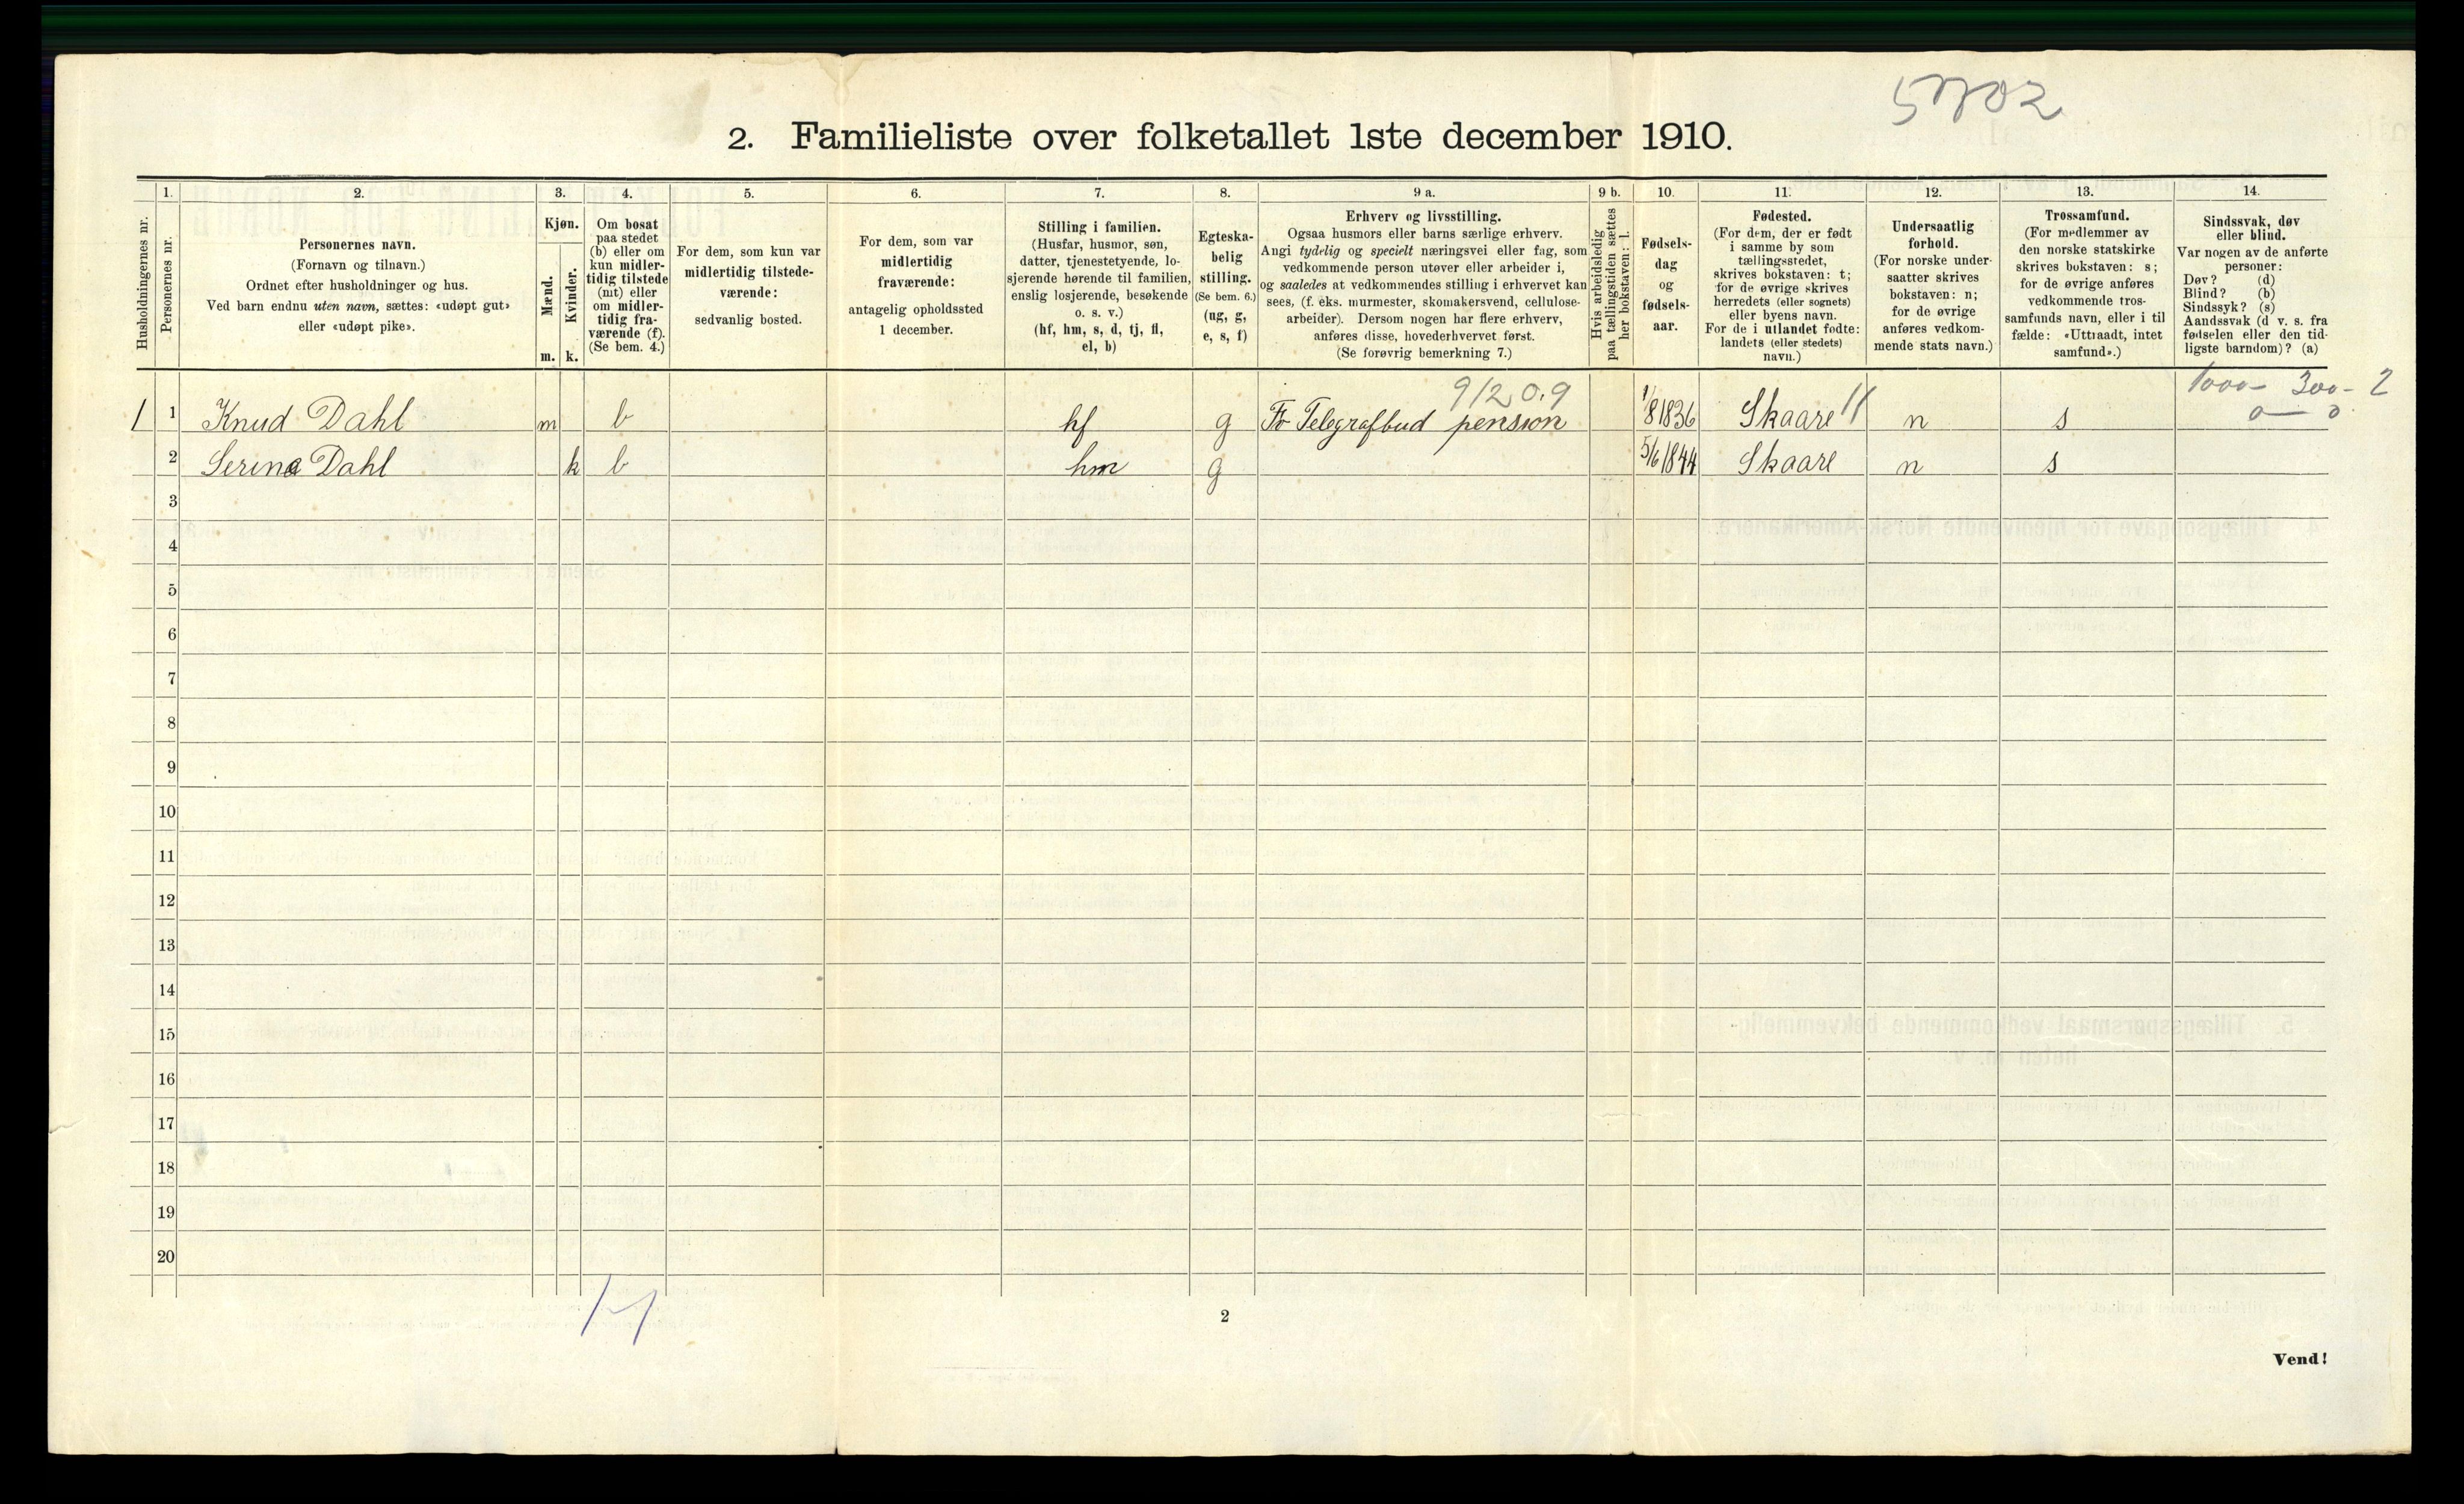 5702
2. Familieliste over folketallet 1ste december 1910.
Husholdningernes nr.
1.
Personernes nr.
2.
Personernes navn.
(Fornavn og tilnavn.)
Ordnet efter husholdninger og hus.
Ved barn endnu uten navn, sættes: «udøpt gut»
eller «udøpt pike».
3.
Kjøn.
Mænd.
Kvinder.
m. k.
4.
Om bosat
paa stedet
(b) eller om
kun midler-
tidig tilstede
(mt) eller
om midler-
tidig fra-
værende (f).
(Se bem. 4.)
5.
For dem, som kun var
midlertidig tilstede-
værende:
sedvanlig bosted.
6.
For dem, som var
midlertidig
fraværende:
antagelig opholdssted
1 december.
7.
Stilling i familien.
(Husfar, husmor, søn,
datter, tjenestetyende, lo-
sjerende hørende til familien,
enslig losjerende, besøkende
o. s. v.)
(hf, hm, s, d, tj, fl,
el, b)
8.
Egteska-
belig
stilling.
(Se bem. 6.)
(ug, g,
e, s, f)
9 a.
Erhverv og livsstilling.
Ogsaa husmors eller barns særlige erhverv.
Angi tydelig og specielt næringsvei eller fag, som
vedkommende person utøver eller arbeider i,
og saaledes at vedkommendes stilling i erhvervet kan
sees, (f. eks. murmester, skomakersvend, cellulose-
arbeider). Dersom nogen har flere erhverv,
anføres disse, hovederhvervet først.
(Se forøvrig bemerkning 7.)
9 b.
Hvis arbeidsledig
paa tællingstiden sættes
her bokstaven: l.
10.
Fødsels-
dag
og
fødsels-
aar.
11.
Fødested.
(For dem, der er født
i samme by som
tællingsstedet,
skrives bokstaven: t;
for de øvrige skrives
herredets (eller sognets)
eller byens navn.
For de i utlandet fødte:
landets (eller stedets)
navn.)
12.
Undersaatlig
forhold.
(For norske under-
saatter skrives
bokstaven: n;
for de øvrige
anføres vedkom-
mende stats navn.)
13.
Trossamfund.
(For medlemmer av
den norske statskirke
skrives bokstaven: s;
for de øvrige anføres
vedkommende tros-
samfunds navn, eller i til
fælde: «Uttraadt, intet
samfund».)
14.
Sindssvak, døv
eller blind.
Var nogen av de anførte
personer:
Døv? (d)
Blind? (b)
Sindssyk? (s)
Aandssvak (d v. s. fra
fødselen eller den tid-
ligste barndom)? (a)
91209 1000 - 300 - 2
0 — 0
1 1 Knud Dahl m b hf g Fr Telegrafbud pension 1/8 1836 Skaare 11 n s
2 Serina Dahl k b hm g 5/6 1844 Skaare n s
3
4
5
6
7
8
9
10
11
12
13
14
15
16
17
18
19
20
1-1
2
Vend!